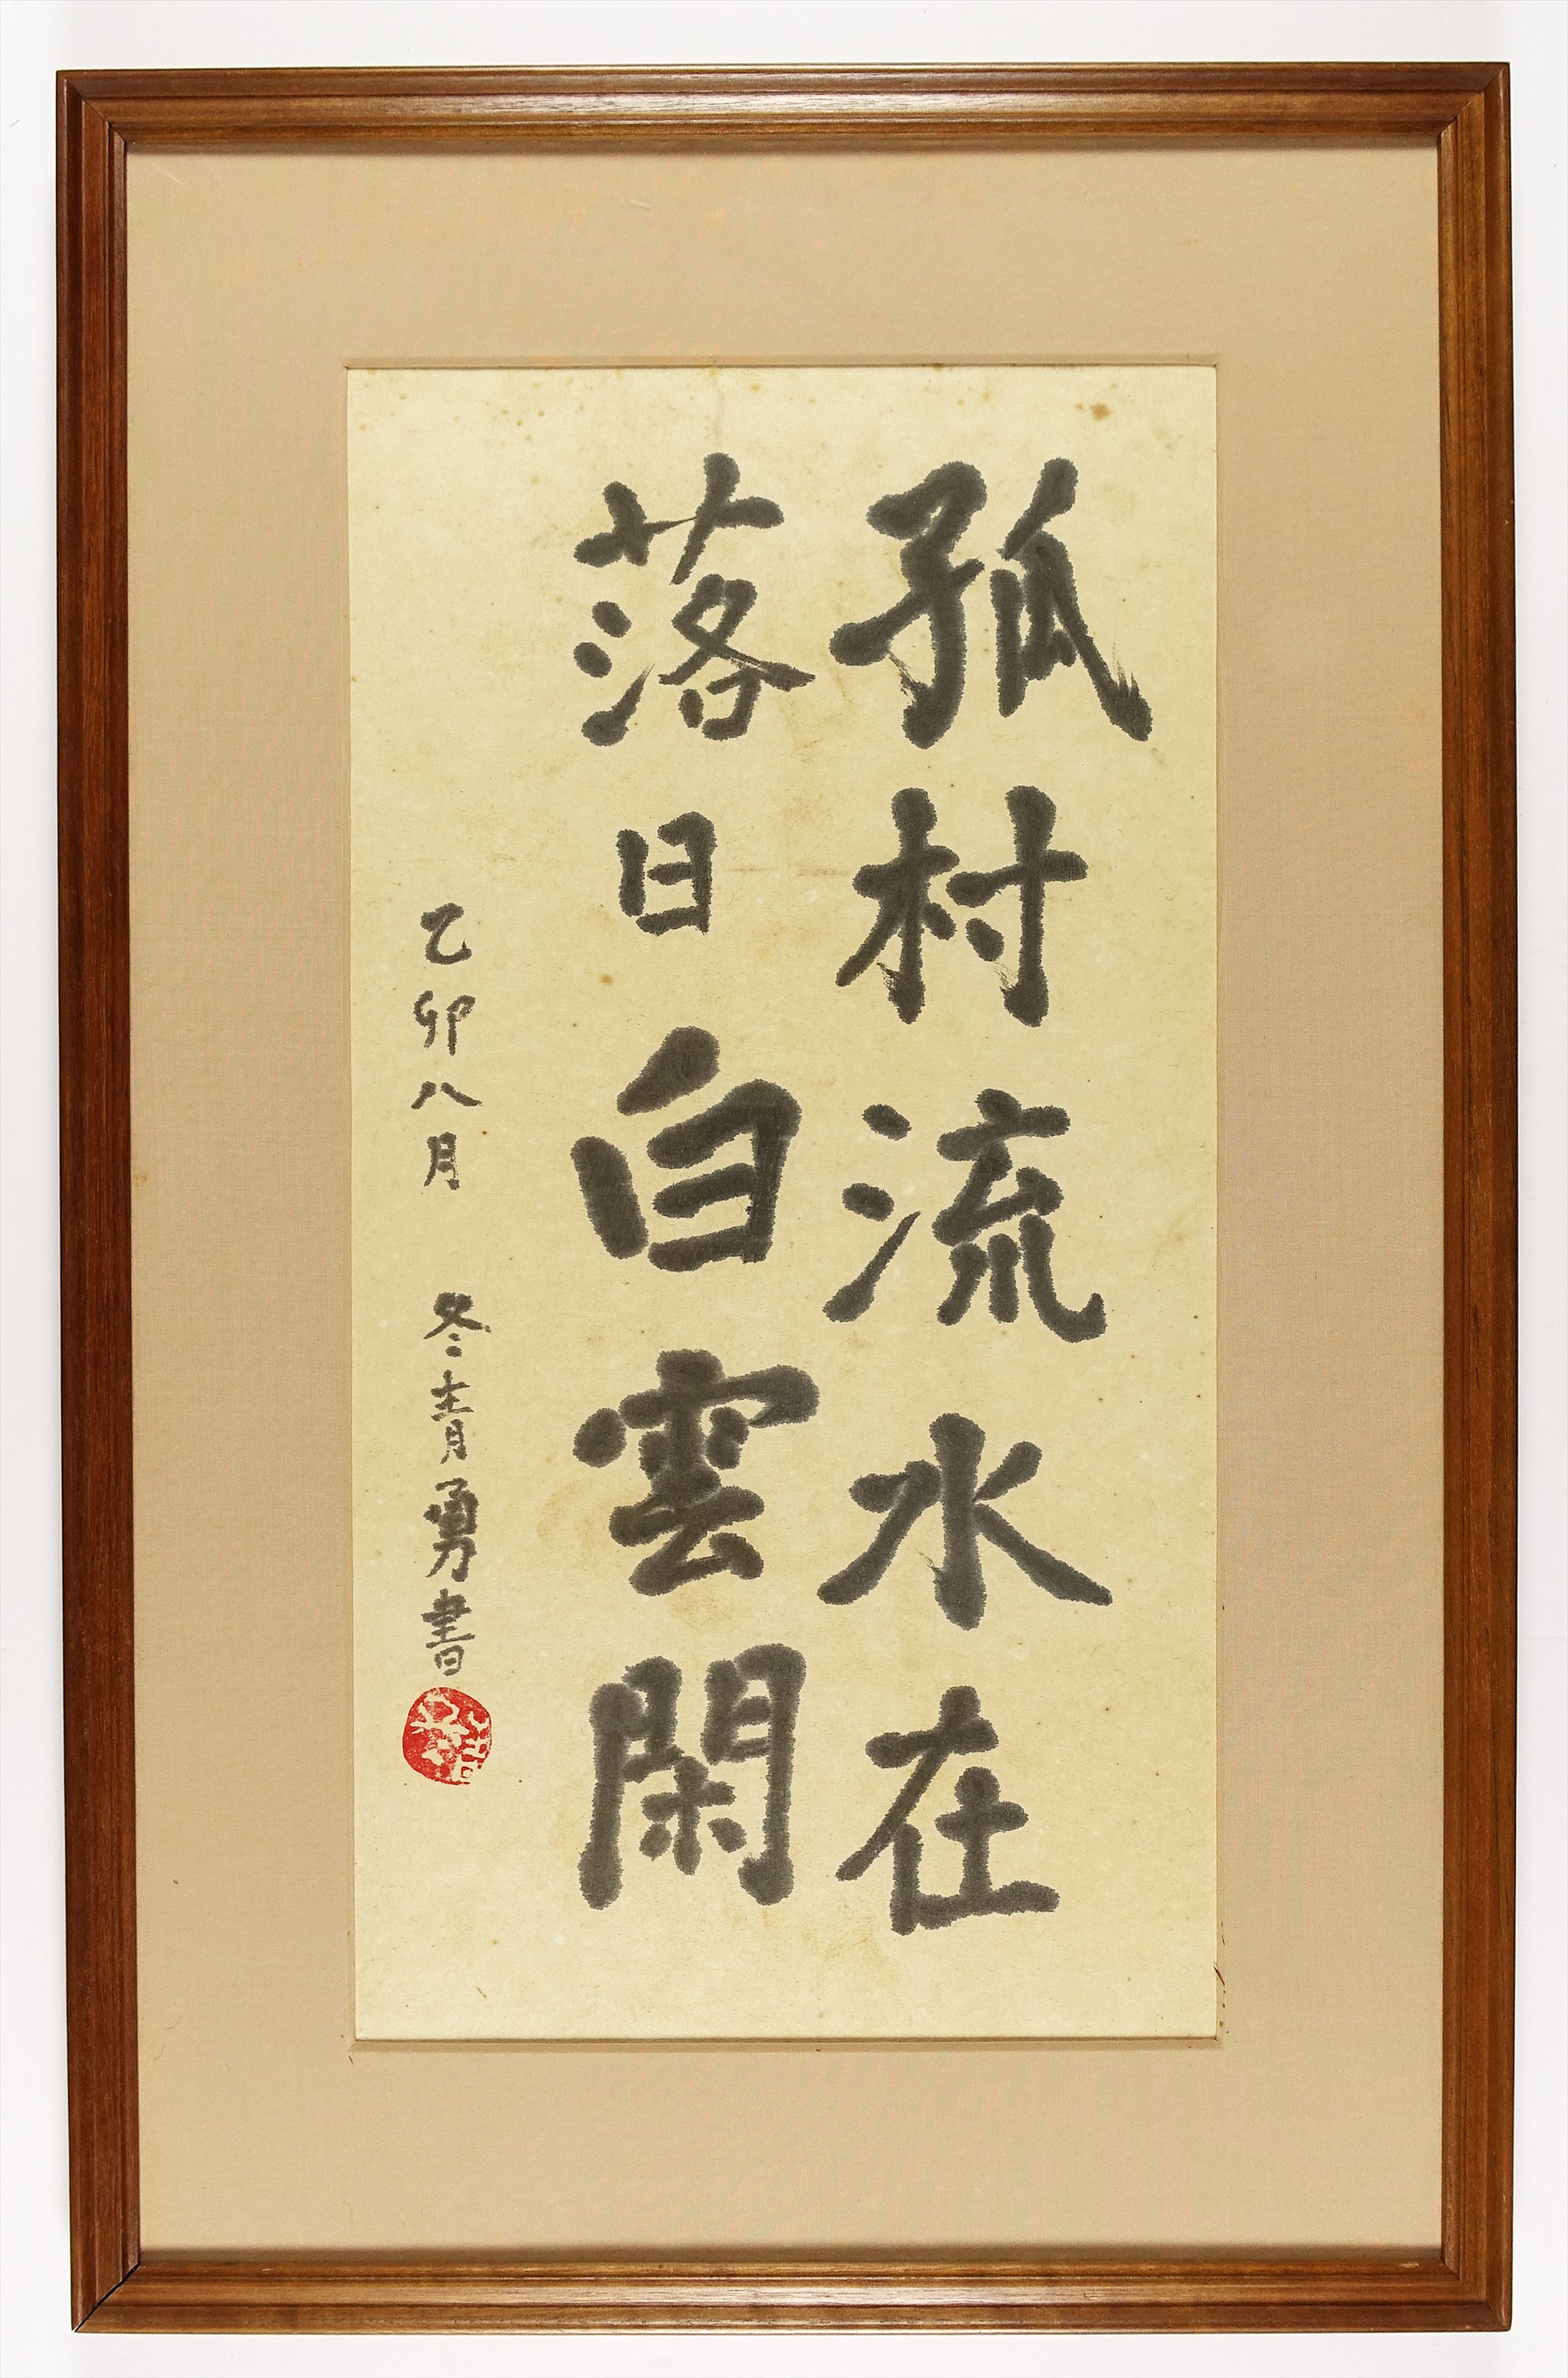 孤村流水在
落日白雲閑
乙卯八月 冬青勇書